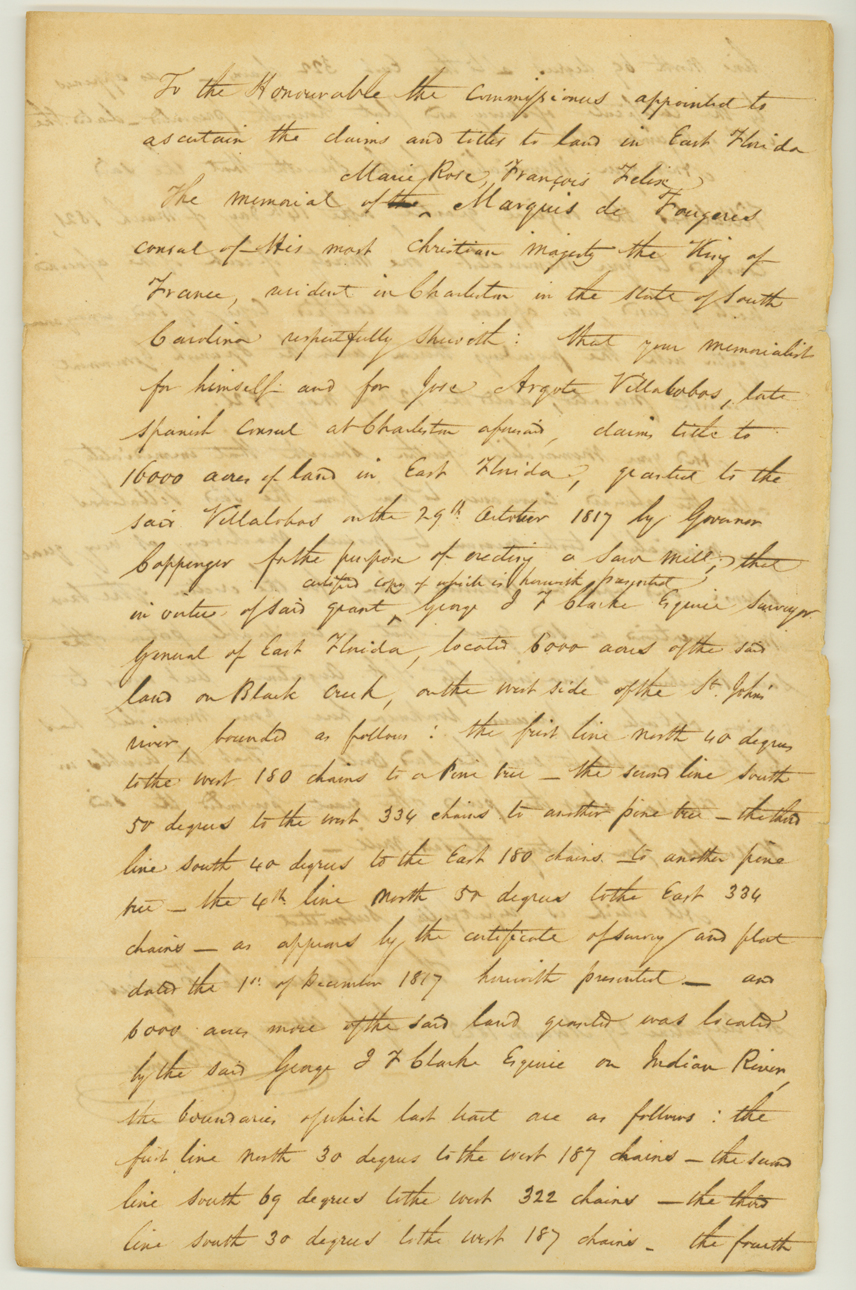 To the Honourable the Commissioners appointed to
ascertain the claims and titles to land in East Florida
Marie Rose, François Felix,
The memorial of the Marquis de Fougeres
consul of His most christian majesty the King of
France, resident in Charleston in the state of South
Carolina respectfully sheweth: that your memorialist
for himself and for Jose Argote Villalobos, late
spanish consul at Charleston aforesaid, claims title to
16000 acres of land in East Florida, granted to the
said Villalobos on the 29th October 1817 by Governor
Coppenger for the purpose of erecting a saw mill; that
certified copy of which is herewith presented
in virtue of said grant, George J F Clarke Esquire surveyor
General of East Florida, located 6000 acres of the said
land on Black Creek, on the west side of the St. John's
river, bounded as follows: the first line north 40 degrees
to the west 180 chains to a Pine tree — the second line south
50 degrees to the west 334 chains to another pine tree — the third
line south 40 degrees to the East 180 chains to another pine
tree — the 4th line North 50 degrees to the East 334
chains — as appears by the certificate of survey and plat
dated the 1st of December 1817 herewith presented — and
6000 acres more of the said land granted was located
by the said George J F Clarke Esquire on Indian River,
the boundaries of which last tract are as follows: the
first line north 30 degrees to the west 187 chains — the second
line south 69 degrees to the west 322 chains — the third
line south 30 degrees to the west 187 chains — the fourth